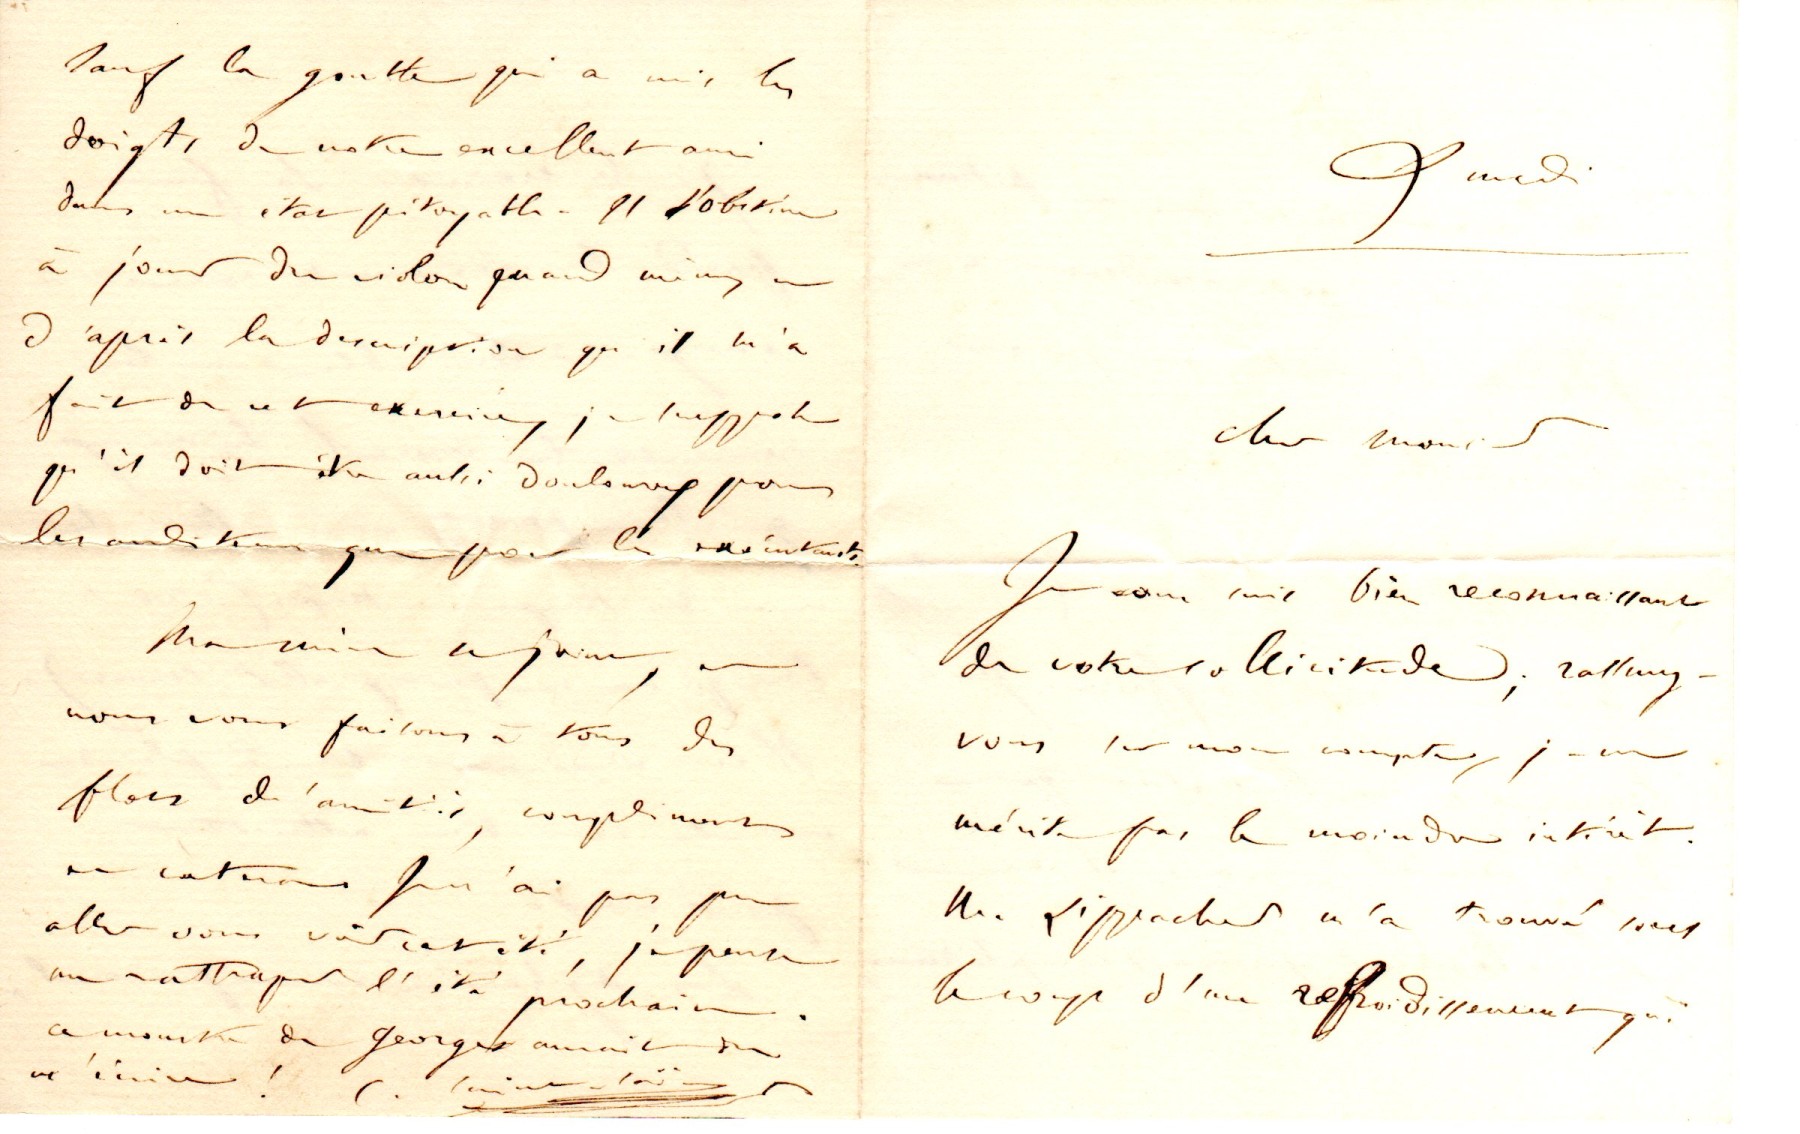 Lundi
cher Monsieur
Je vous suis bien reconnaissant
de votre sollicitude ; rassurez-
vous sur mon compte, je ne
mérite pas le moindre intérêt.
Mr. Lippacher m'a trouvé sous
le coup d'un refroidissement qui
sauf la goutte qui a mis les
doigts de notre excellent ami
dans un état pitoyable. Il s'obstine
à jouer du violon quand même, et
d'après la description qu'il m'a
fait de cet exercice, je suppose
qu'il doit être aussi douloureux pour
les auditeurs que pour les exécutants.
Ma mère se joint, et
nous vous faisons à tous des
flots d'amitiés, compliments
et caetera. Je n'ai pas pu
aller vous voir cet été, je pense
me rattraper l'été prochain.
Ce monstre de Georges aurait dû
m'écrire ! C. Saint-Saëns